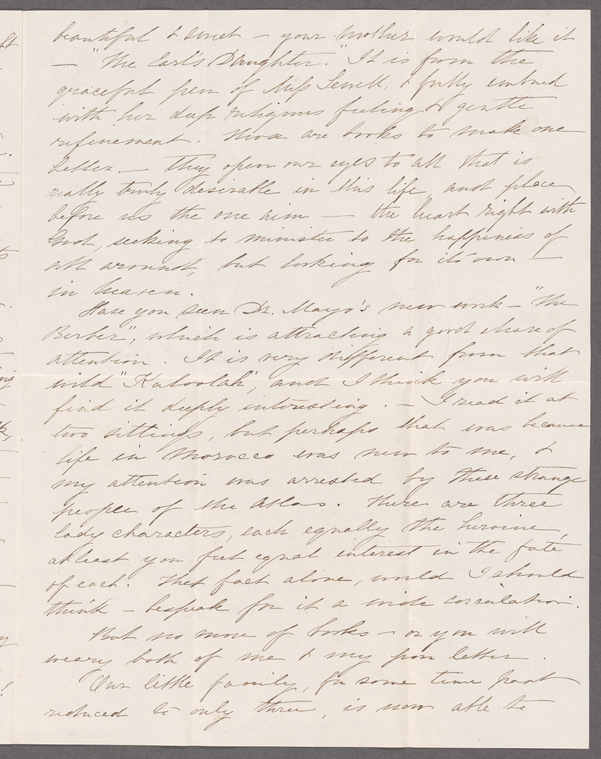 beautiful & sweet – your mother would like it
– "The Earl's Daughter." It is from the
graceful pen of Miss Sewell, & fully imbued
with her deep religious feeling & gentle
refinement. Those are books to make one
better – they open our eyes to all that is
really truly desirable in this life, and place
before us the one aim – the heart right with
God, seeking to minister to the happiness of
all around, but looking for its own –
in heaven.
Have you seen Dr. Mayo's new work – "The
Berber", which is attracting a good share of
attention. It is very different from that
wild "Kaloolah", and I think you will
find it deeply interesting. – I read it at
two sittings, but perhaps that was because
life in Morocco was new to me, &
my attention was arrested by these strange
people of the Atlas. There are three
lady characters, each equally the heroine,
at least you feel equal interest in the fate
of each. That fact alone, would I should
think – bespeak for it a wide circulation.
But no more of books – or you will
weary both of me & my poor letter.
Our little family, for some time past
reduced to only three, is now able to